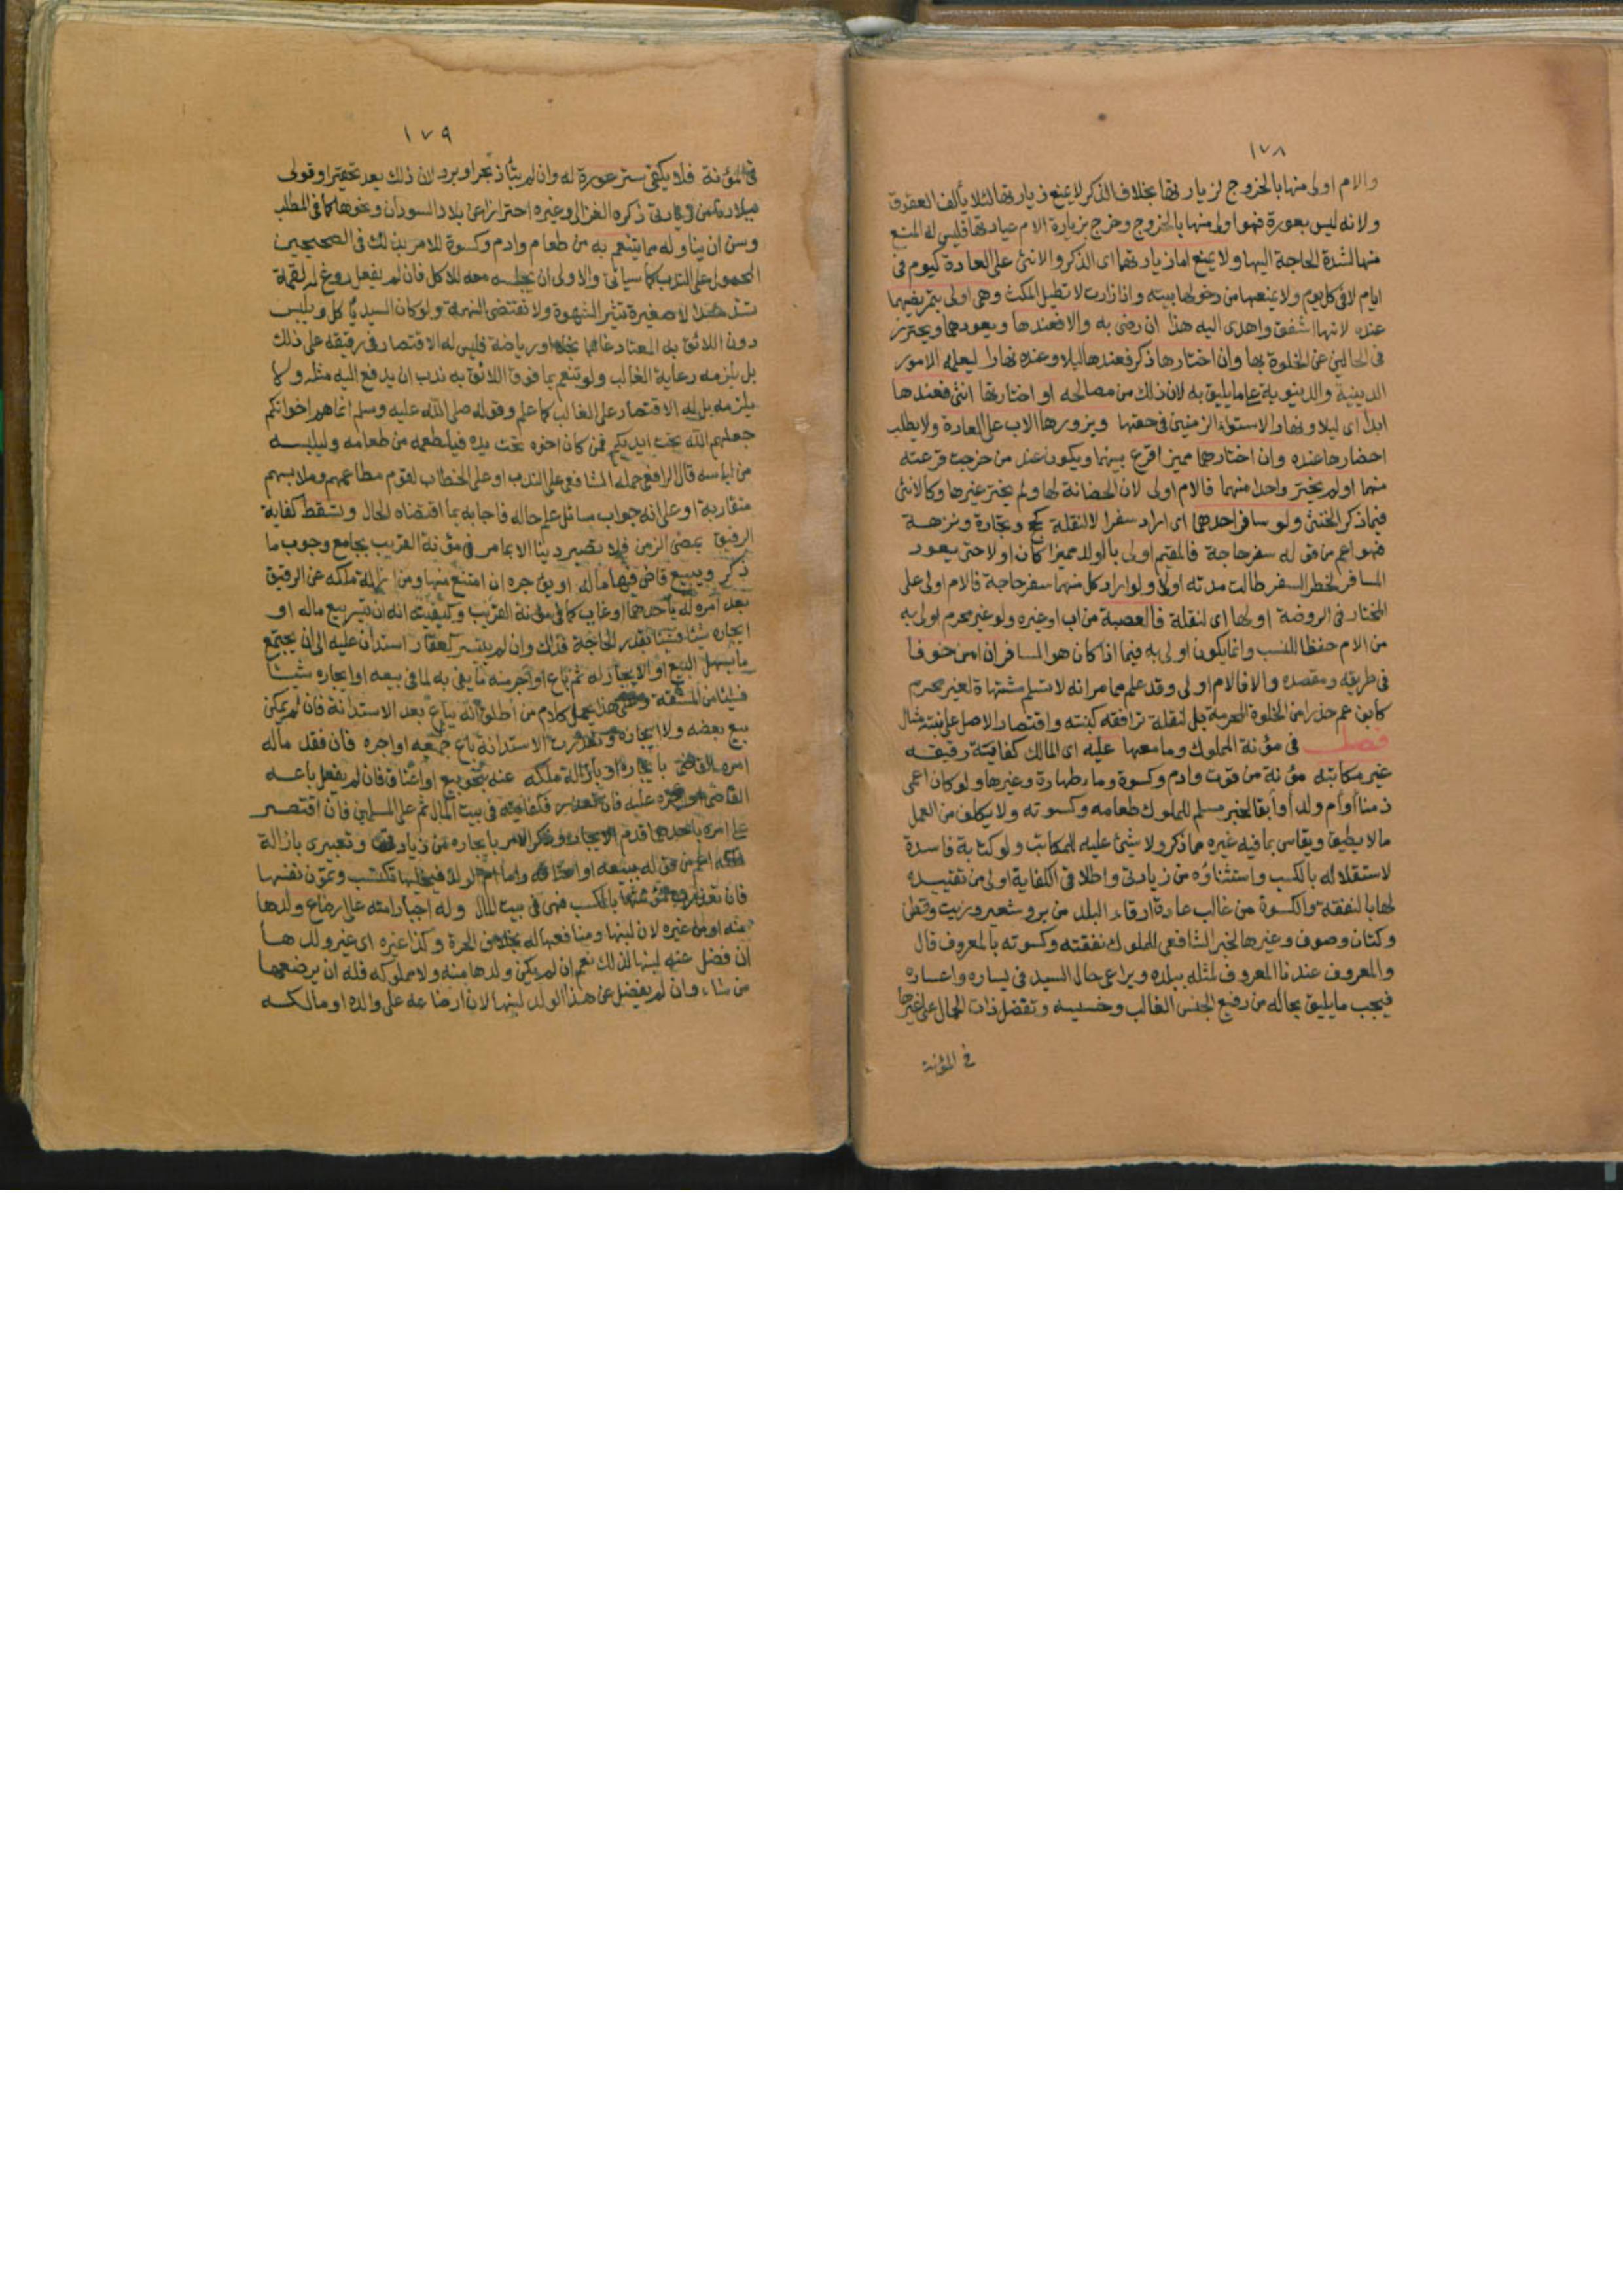 ١٧٨
والام اولى منها بالخروج لزيارتها بخلاف الذكر لا يمنع زيارتها لئلا يألف العقوق
ولانه ليس بعورة فهو اولى منها بالخروج وخرج بزيارة الام عيادتها فليس له المنع
منها لشدة الحاجة اليها ولا يمنع اما زيارتهما اى الذكر والانثى على العادة كيوم فى
ايام لا فى كل يوم ولا يمنعها من دخولها بيته واذا زارت لا تطيل المكث وهى اولى بتمريضهما
عنده لانها اشفق واهدى اليه هذا ان رضى به والا فعندها ويعودهما ويحترز
فى الحالين عن الخلوة بها وان اختارها ذكر فعندها ليلا وعنده نهارا ليعلمه الامور
الدينية والدنيوية على ما يليق به لان ذلك من مصالحه او اختارتها انثى فعندها
ابدا اى ليلا ونهارا لاستواء الزمنين فى حقها ويزورها الاب على العادة ولا يطلب
احضارها عنده وان اختارهما مميز اقرع بينهما ويكون عند من خرجت قرعته
منهما او لم يختر واحدا منهما فالام اولى لان الحضانة لها ولم يختر غيرها وكالانثى
فيما ذكر الخنثى ولو سافر احدهما اى اراد سفرا لا لنقلة كحج وتجارة ونزهة
فهو اعم من قوله سفر حاجة فالمقيم اولى بالولد مميزا كان او لا حتى يعود
المسافر لخطر السفر طالت مدته او لا ولو اراد كل منهما سفر حاجة فالام اولى على
المختار فى الروضة او لها اى لنقلة فالعصبة من اب او غيره ولو غير محرم اولى به
من الام حفظا للنسب وانما يكون اولى به فيما اذا كان هو المسافر ان امن خوفا
فى طريقه ومقصده والا فالام اولى وقد علم مما مر انه لا تسلم مشتهاة لغير محرم
كابن عم حذرا من الخلوة المحرمة بل لنقلة ترافقه كبنته واقتصار الاصل على بنته مثال
فصل فى مؤنة المملوك وما معها عليه اى المالك كفاية رقيقه
غير مكاتبه مؤنة من قوت وادم وكسوة وماء طهارة وغيرها ولو كان اعمى
زمنا او ام ولد او ابقا لخبر مسلم للمملوك طعامه وكسوته ولا يكلف من العمل
ما لا يطيق ويقاس بما فيه غيره مما ذكر ولا شيئ عليه للمكاتب ولو كتابة فاسدة
لاستقلاله بالكسب واستثناؤه من زيادتى واطلاقى الكفاية اولى من تقييده
لها بالنفقة والكسوة من غالب عادة ارقاء البلد من بر وشعير وزيت وقطن
وكتان وصوف وغيرها لخبر الشافعى للمملوك نفقته وكسوته بالمعروف قال
والمعروف عندنا المعروف لمثله ببلده ويراعى حال السيد فى يساره واعساره
فيجب ما يليق بحاله من رفيع الجنس الغالب وخسيسه وتفضل ذات الجمال على غيرها
فى المؤنة
١٧٩
فى المؤنة فلا يكفى ستر عورة له وان لم يتأذ بحر او برد لان ذلك يعد تحقيرا وقولى
ببلادنا من زيادتى ذكره الغزالى وغيره احترازا عن بلاد السودان ونحوها كما فى المطلب
وسن ان يناوله مما يتنعم به من طعام وادم وكسوة للامر بذلك فى الصحيحين
المحمول على الندب كما سيأتى والاولى ان يجلسه معه للاكل فان لم يفعل روغ له لقمة
تسد مسدا لا صغيرة تثير الشهوة ولا تقتضى النهمة ولو كان السيد يأكل ويلبس
دون اللائق به المعتاد غالبا بخلا او رياضة فليس له الاقتصار فى رقيقه على ذلك
بل يلزمه رعاية الغالب ولو تنعم بما فوق اللائق به ندب ان يدفع اليه مثله ولا
يلزمه بل له الاقتصار على الغالب كما علم وقوله صلى الله عليه وسلم انما هم اخوانكم
جعلهم الله تحت ايديكم فمن كان اخوه تحت يده فليطعمه من طعامه وليلبسه
من لباسه قال الرافعى حمله الشافعى على الندب او على الخطاب لقوم مطاعمهم وملابسهم
متقاربة او على انه جواب سائل علم حاله فاجابه بما اقتضاه الحال وتسقط كفاية
الرقيق بمضى الزمن فلا تصير دينا الا بما مر فى مؤنة القريب بجامع وجوب ما
ذكر ويبيع قاض فيها ماله او يؤجره ان امتنع منها ومن ازالة ملكه عن الرقيق
بعد امره له باحدهما او غاب كما فى مؤنة القريب وكيفيته انه ان تيسر بيع ماله او
ايجاره شيئا فشيئا بقدر الحاجة فذاك وان لم يتيسر كعقار استدان عليه الى ان يجتمع
ما يسهل البيع او الايجار له ثم باع او اجر منه ما يفى به لما فى بيعه او ايجاره شيئا
فشيئا من المشقة وعلى هذا يحمل كلام من اطلق انه يباع بعد الاستدانة فان لم يمكن
بيع بعضه ولا ايجاره وتعذرت الاستدانة باع جميعه او اجره فان فقد ماله
امره القاضى بايجاره او بازالة ملكه عنه بنحو بيع او اعتاق فان لم يفعل باعه
القاضى او اجره عليه فان تعذر فكفايته فى بيت المال ثم على المسلمين فان اقتصر
على امره باحدهما قدم الايجار وذكر الامر بايجاره من زيادتى وتعبيرى بازالة
ملكه اعم من قوله ببيعه او اعتاقه واما ام الولد فيخليها تكتسب وتمون نفسها
فان تعذرت مؤنتها بالكسب فهى فى بيت المال وله اجبار امته على ارضاع ولدها
منه او من غيره لان لبنها ومنافعها له بخلاف الحرة وكذا غيره اى غير ولدها
ان فضل عنه لبنها لذلك نعم ان لم يكن ولدها منه ولا مملوكه فله ان يرضعها
من شاء وان لم يفضل عن هذا الولد لبنها لان ارضاعه على والده او مالكه